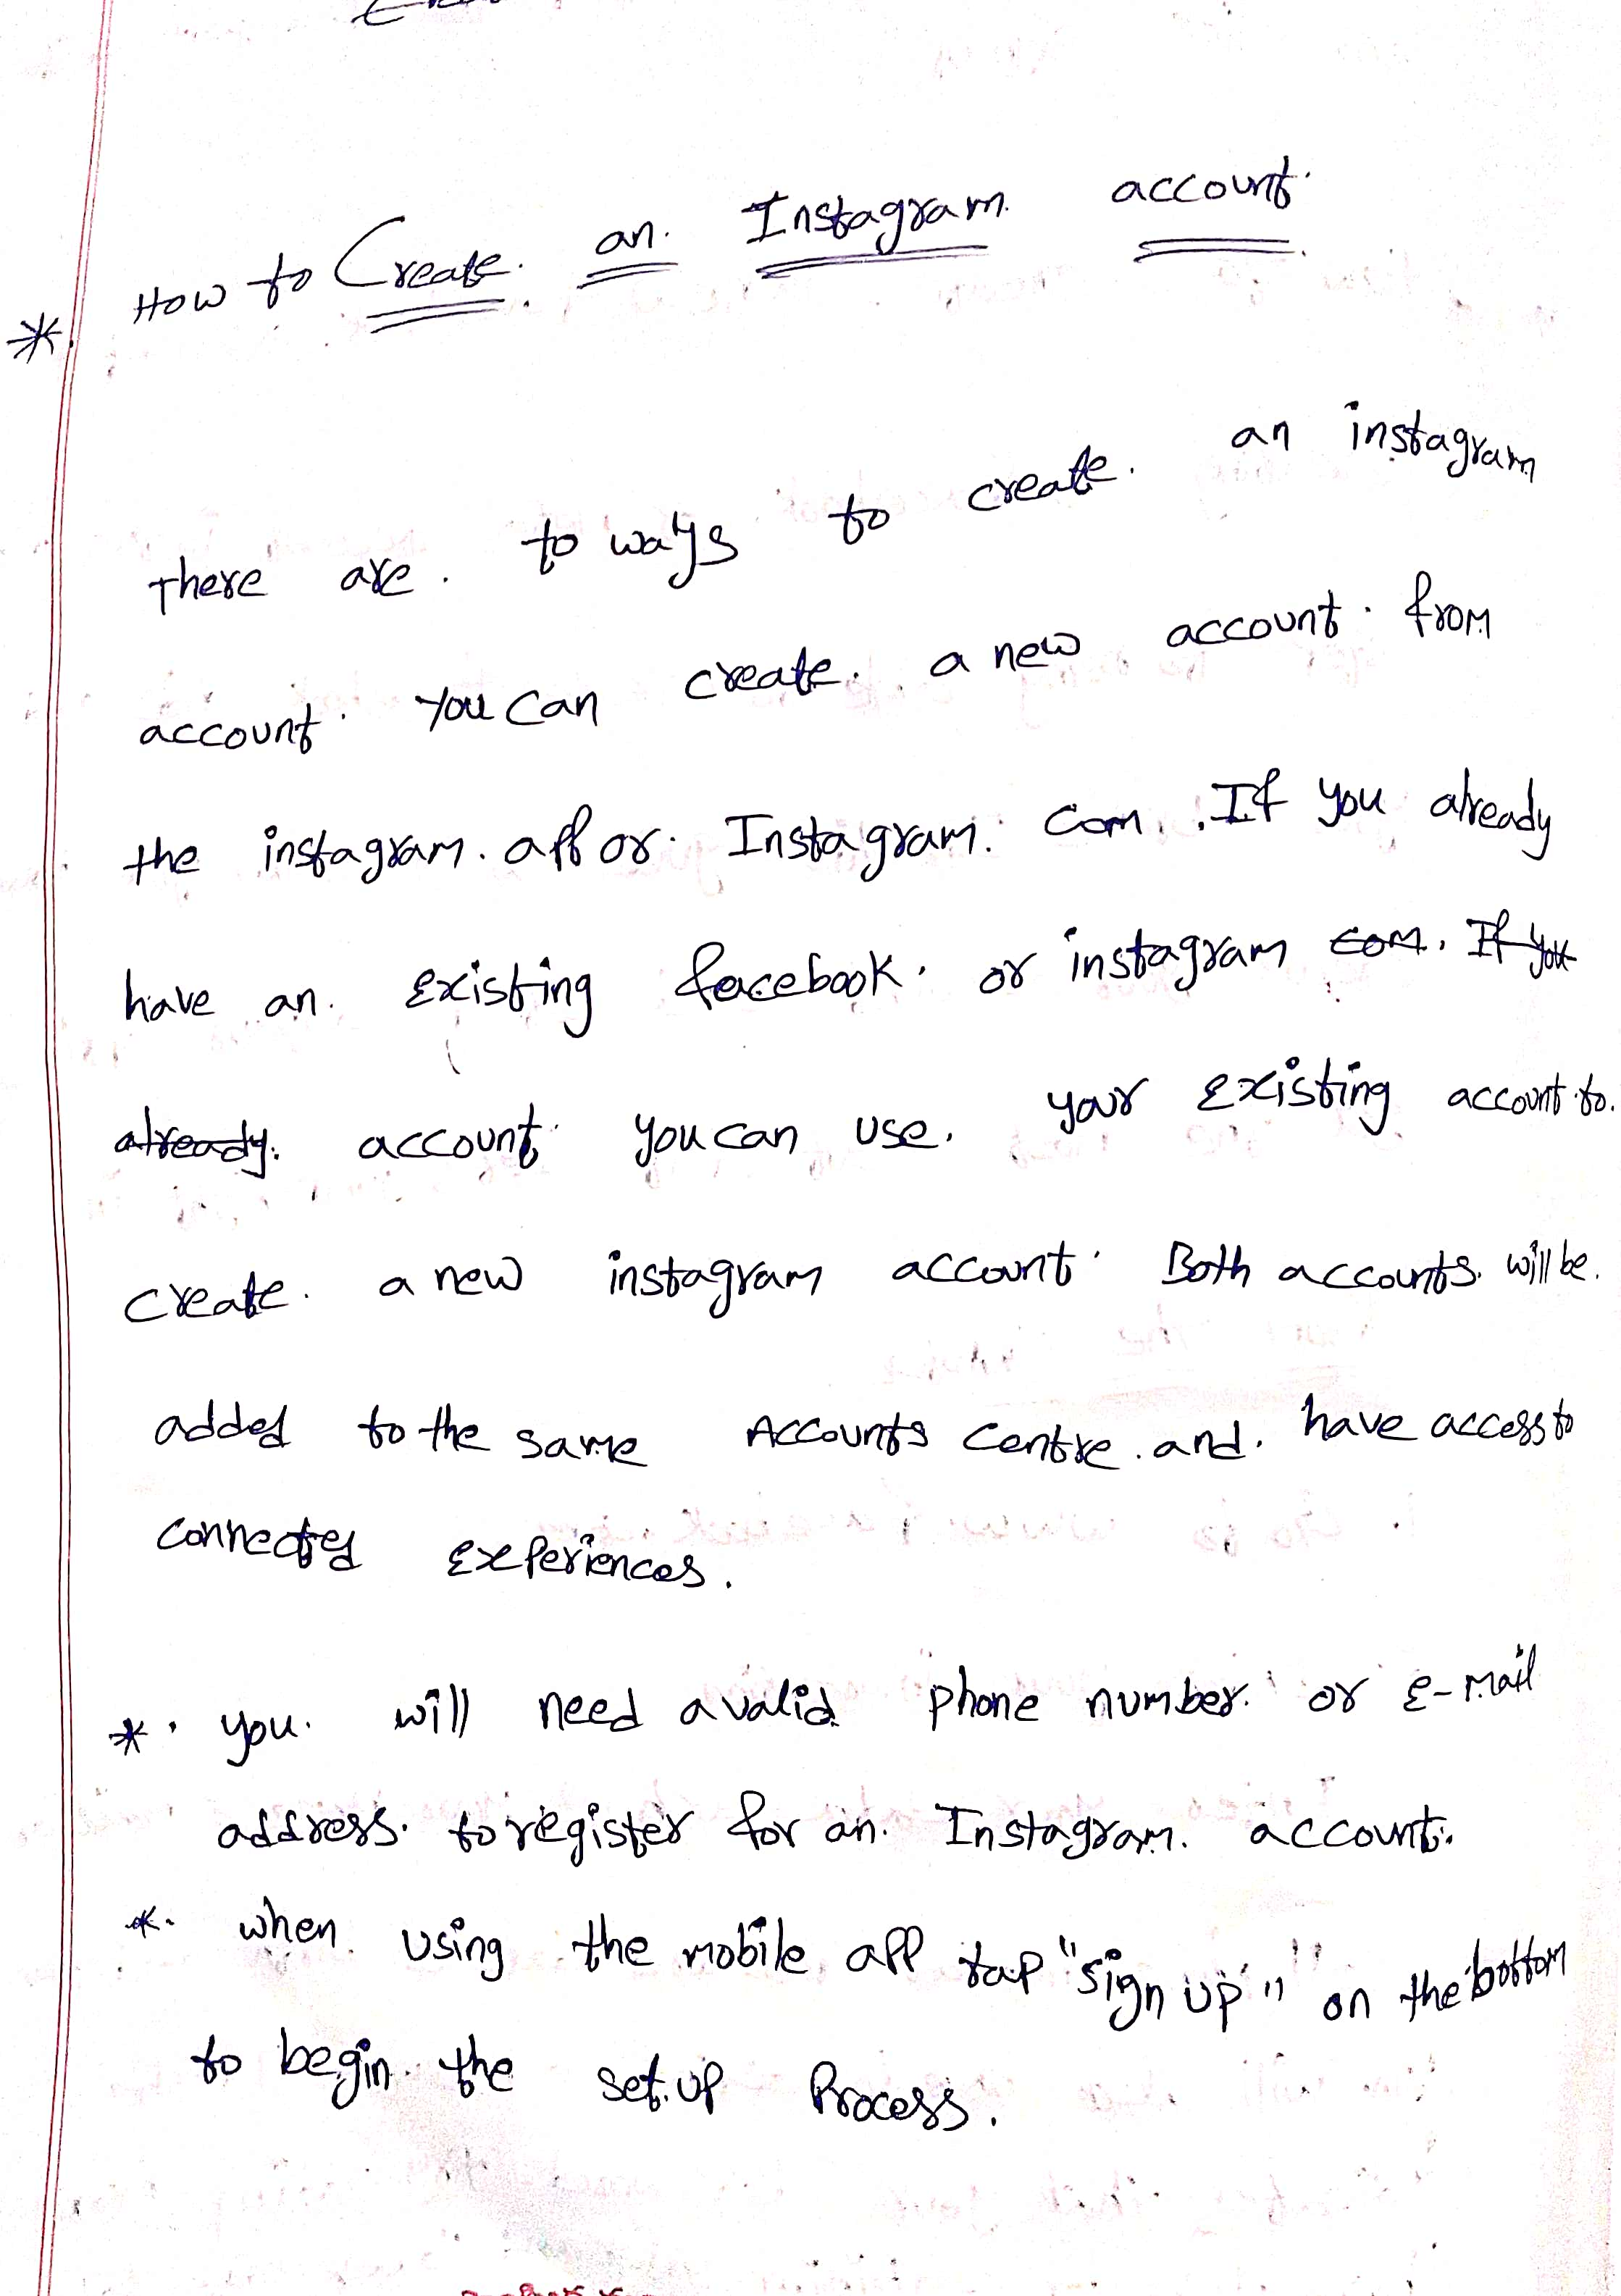 * How to Create. an. Instagram. account.
There are. to ways to create. an instagram
account. You Can create. a new account. from
the instagram. app or. Instagram. Com. If you already
have an. Existing facebook. or instagram com. If you
already. account. you can use. your Existing account to.
create. a new instagram account. Both accounts. will be.
added to the same Accounts Centre. and. have access to
connected Experiences.
*. you. will need a valid phone number. or E-mail
address. to register for an. Instagram. account.
*. when. using the mobile app tap "sign up" on the bottom
to begin. the set.up Process.